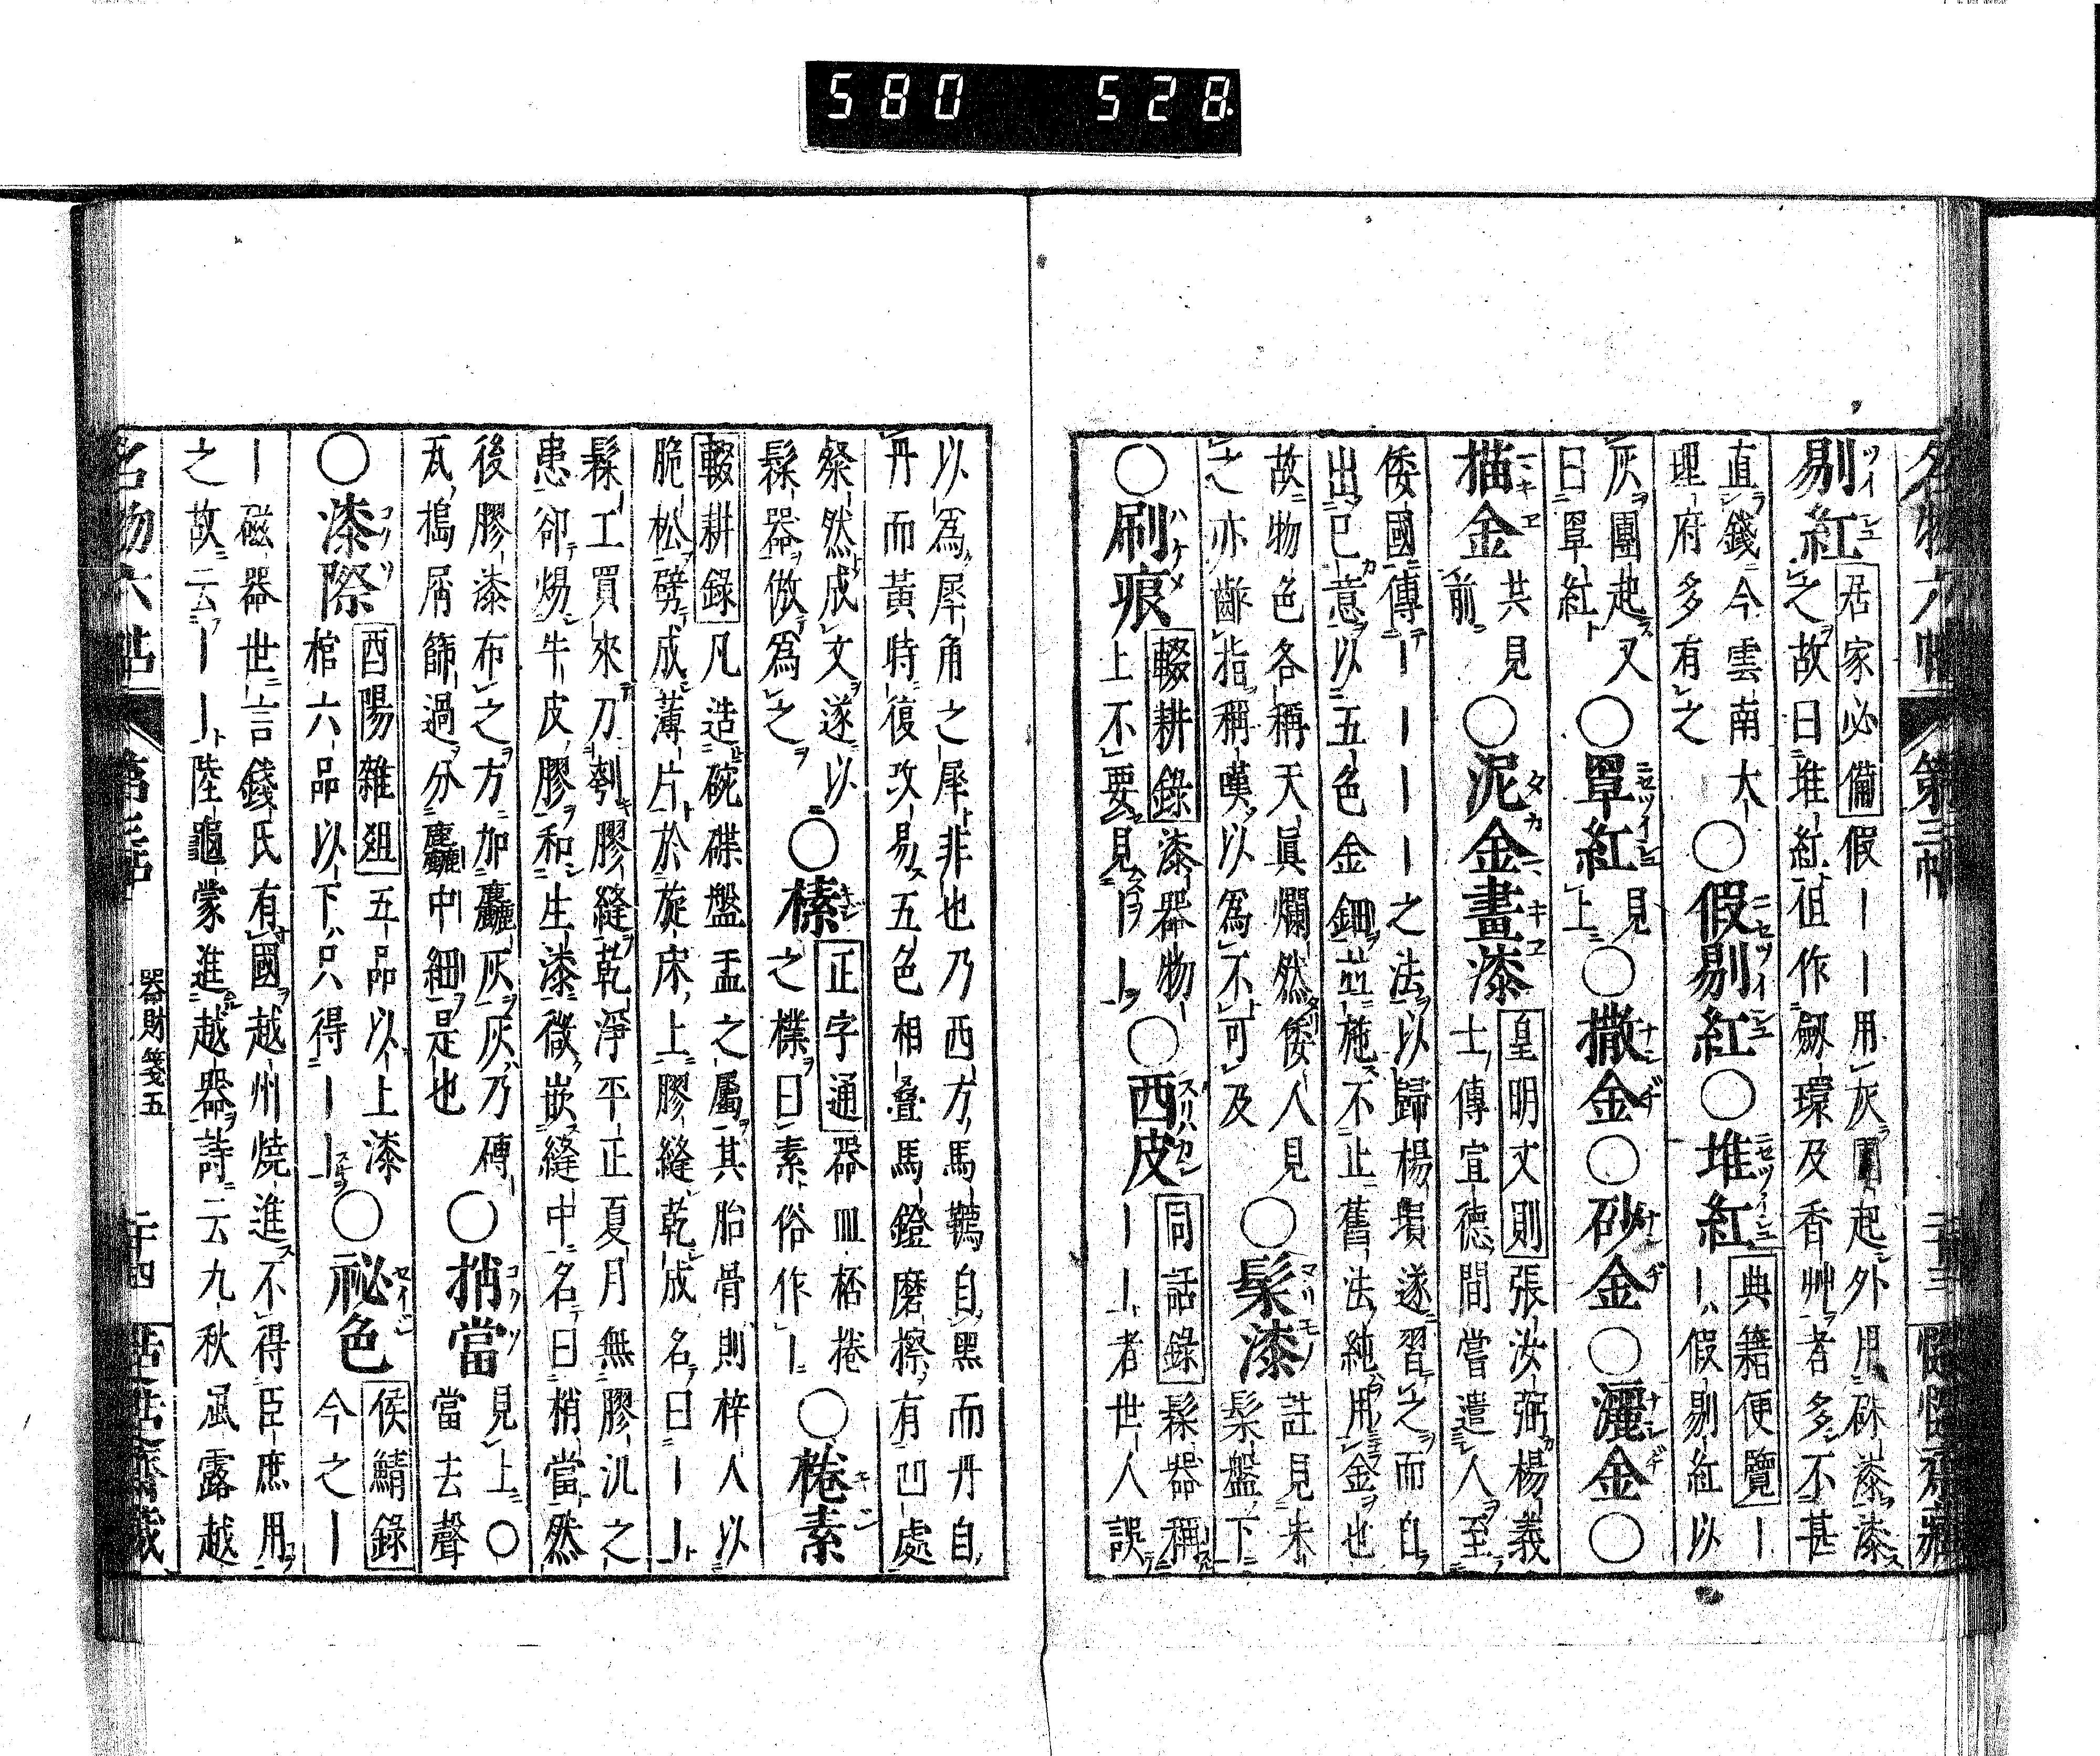 580 528
名物六帖 第三帖 二十三
剔紅 居家必備 假丨丨用灰團起外用硃漆漆
之故曰堆紅徂作劔環及香艸者多不甚
直錢今雲南大
理府多有之 ○假剔紅○堆紅 典籍便覽 丨
丨假剔紅以
灰團起又
曰罩紅 ○罩紅 見上 ○撒金○砂金○灑金○
描金 共見前 ○泥金畫漆 皇明文則 張汝弼楊義
士傳宣德間嘗遣人至
倭國傳丨丨丨丨之法以歸楊塤遂習之而自
出已意以五色金鈿並施不止舊法純用金也
故物色各稱天眞爛然倭人見
之亦齰指稱嘆以爲不可及 ○髹漆 註見朱
髹盤下
○刷痕 輟耕錄 漆器物
上不要見丨丨 ○西皮 同話錄 髹器稱
丨丨者世人誤
以爲犀角之犀非也乃西方馬韉自黑而丹自
丹而黃時復改易五色相疊馬鐙磨擦有凹處
粲然成文遂以
髹器倣爲之 ○榡 正字通 器皿桮棬
之樸曰素俗作丨 ○棬素
輟耕錄 凡造碗碟盤盂之屬其胎骨則梓人以
脆松劈成薄片於旋床上膠縫乾成名曰丨丨
髹工買來刀刳膠縫乾淨平正夏月無膠汎之
患卻煬牛皮膠和生漆微嵌縫中名曰梢當然
後膠漆布之方加麤灰灰乃磚
瓦搗屑篩過分麤中細是也 ○捎當 見上○
當去聲
○漆際 酉陽雜爼 五品以上漆
棺六品以下只得丨丨 ○祕色 侯鯖錄
今之丨
丨磁器世言錢氏有國越州燒進不得臣庶用
之故云丨丨陸龜蒙進越器詩云九秋風露越
名物六帖 第三帖 器財箋五 二十四